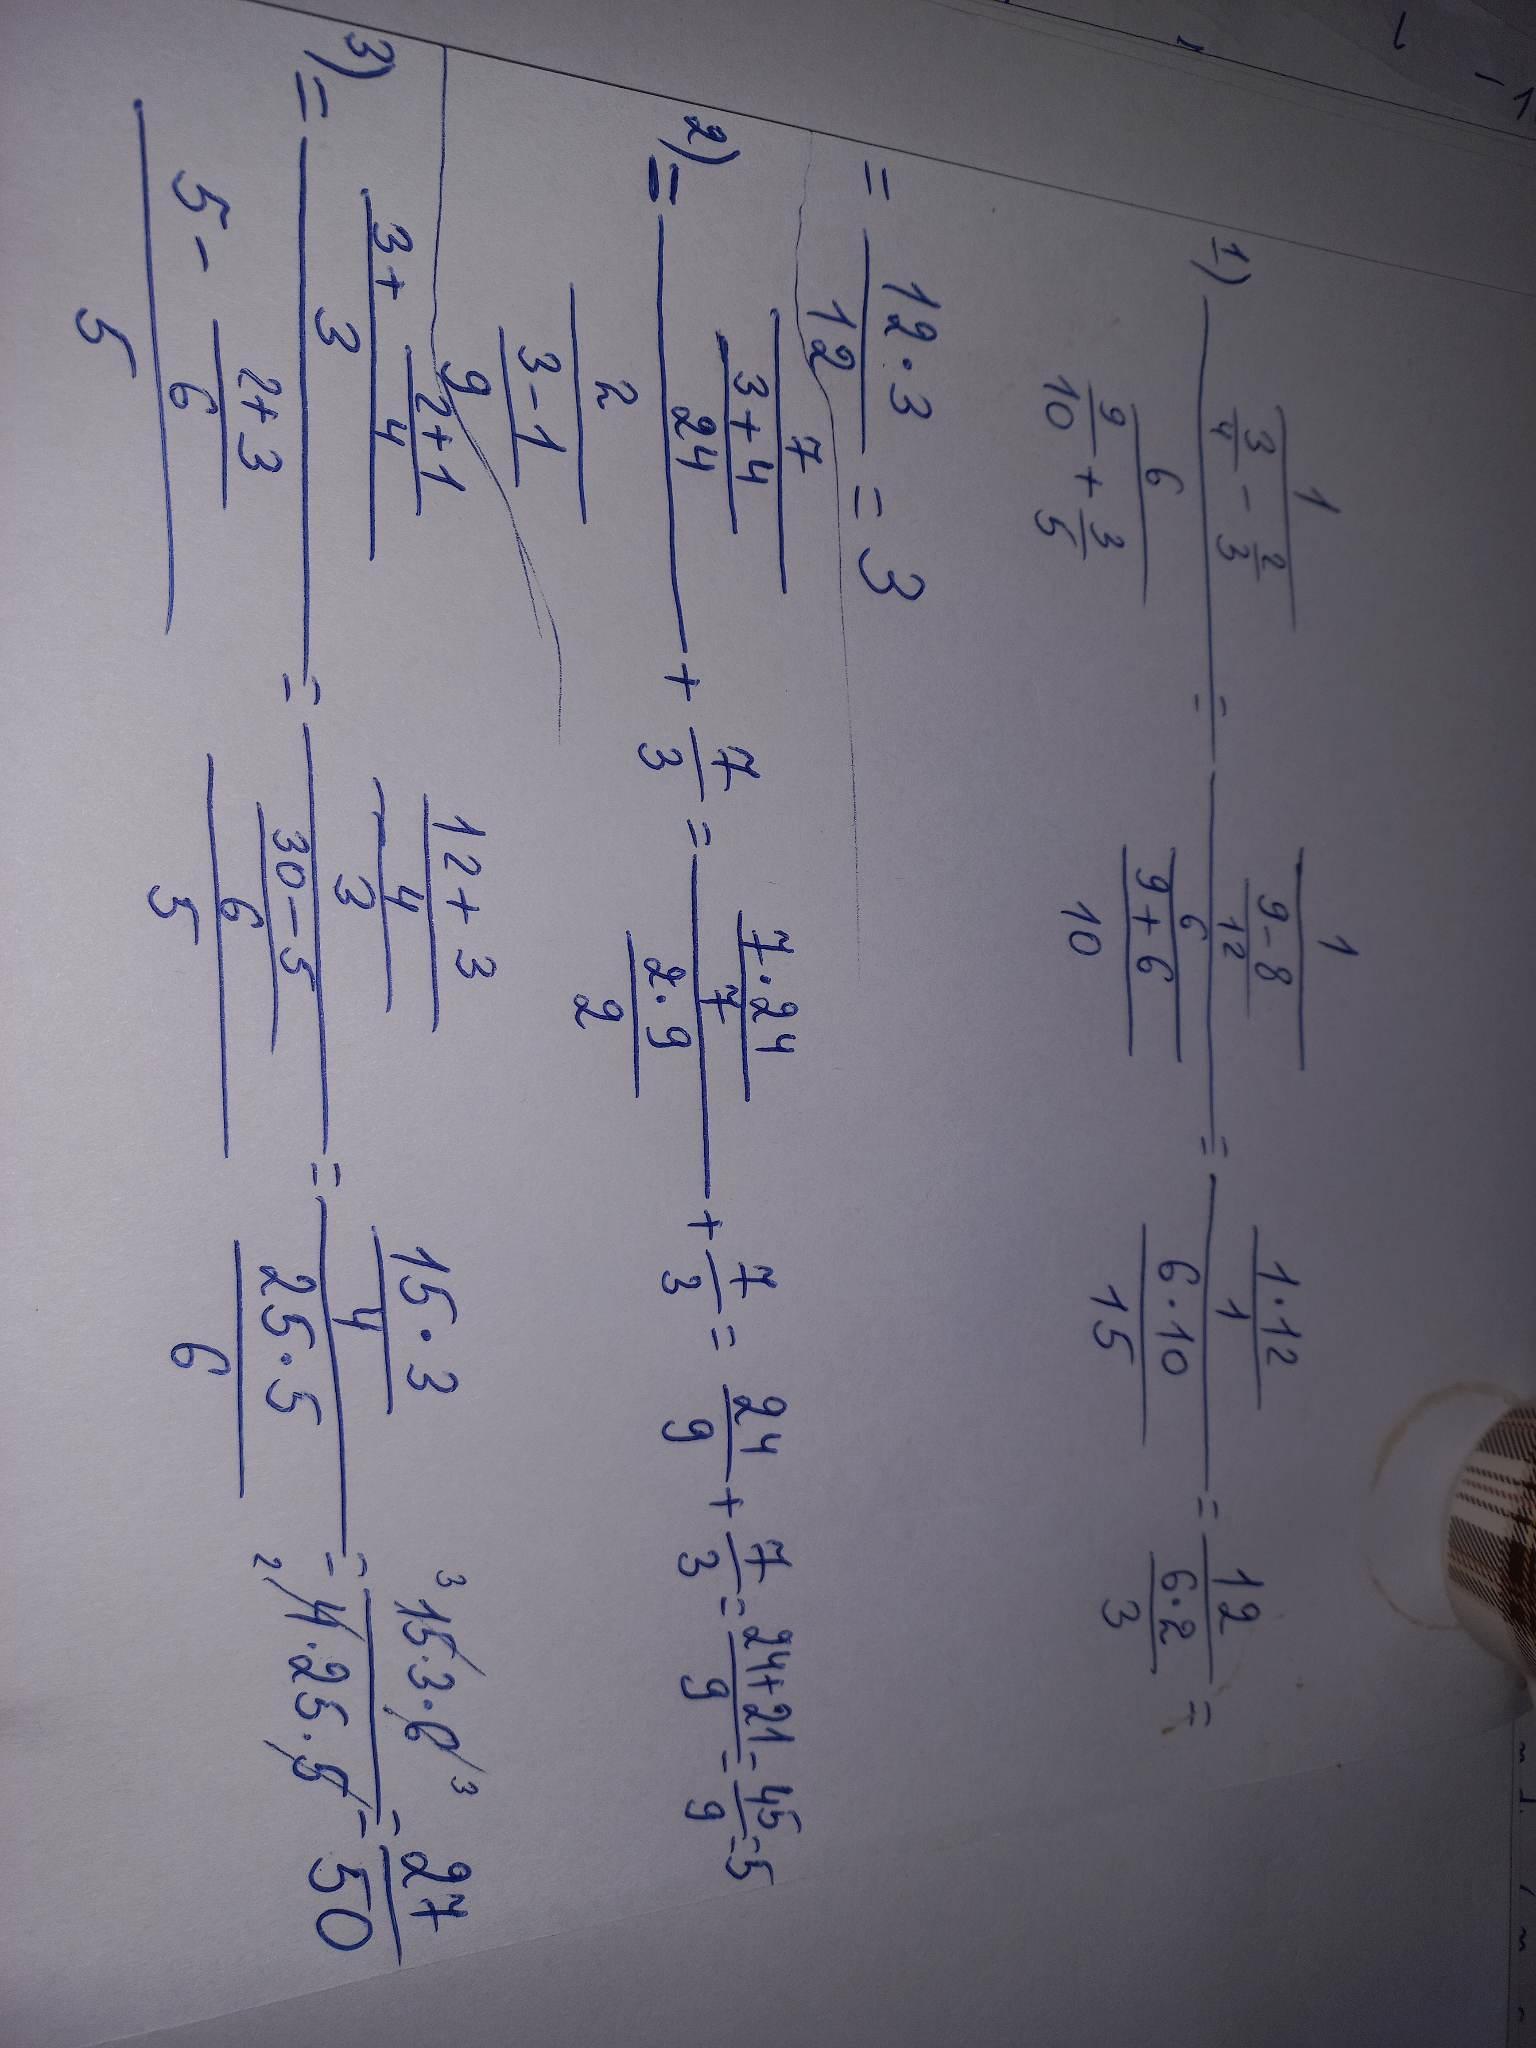 1) (1/(3/4 - 2/3))/(6/(9/10 + 3/5)) = (1/((9-8)/12))/(6/((9+6)/10)) = ((1·12)/1)/((6·10)/15) = 12/((6·2)/3) =
= (12·3)/12 = 3
2) = (7/((3+4)/24))/(2/((3-1)/9)) + 7/3 = ((7·24)/7)/((2·9)/2) + 7/3 = 24/9 + 7/3 = (24+21)/9 = 45/9 = 5
3) = ((3 + (2+1)/4)/3)/((5 - (2+3)/6)/5) = (((12+3)/4)/3)/(((30-5)/6)/5) = ((15·3)/4)/((25·5)/6) = (³15·3·6 ³)/(₂4·25·5) = 27/50